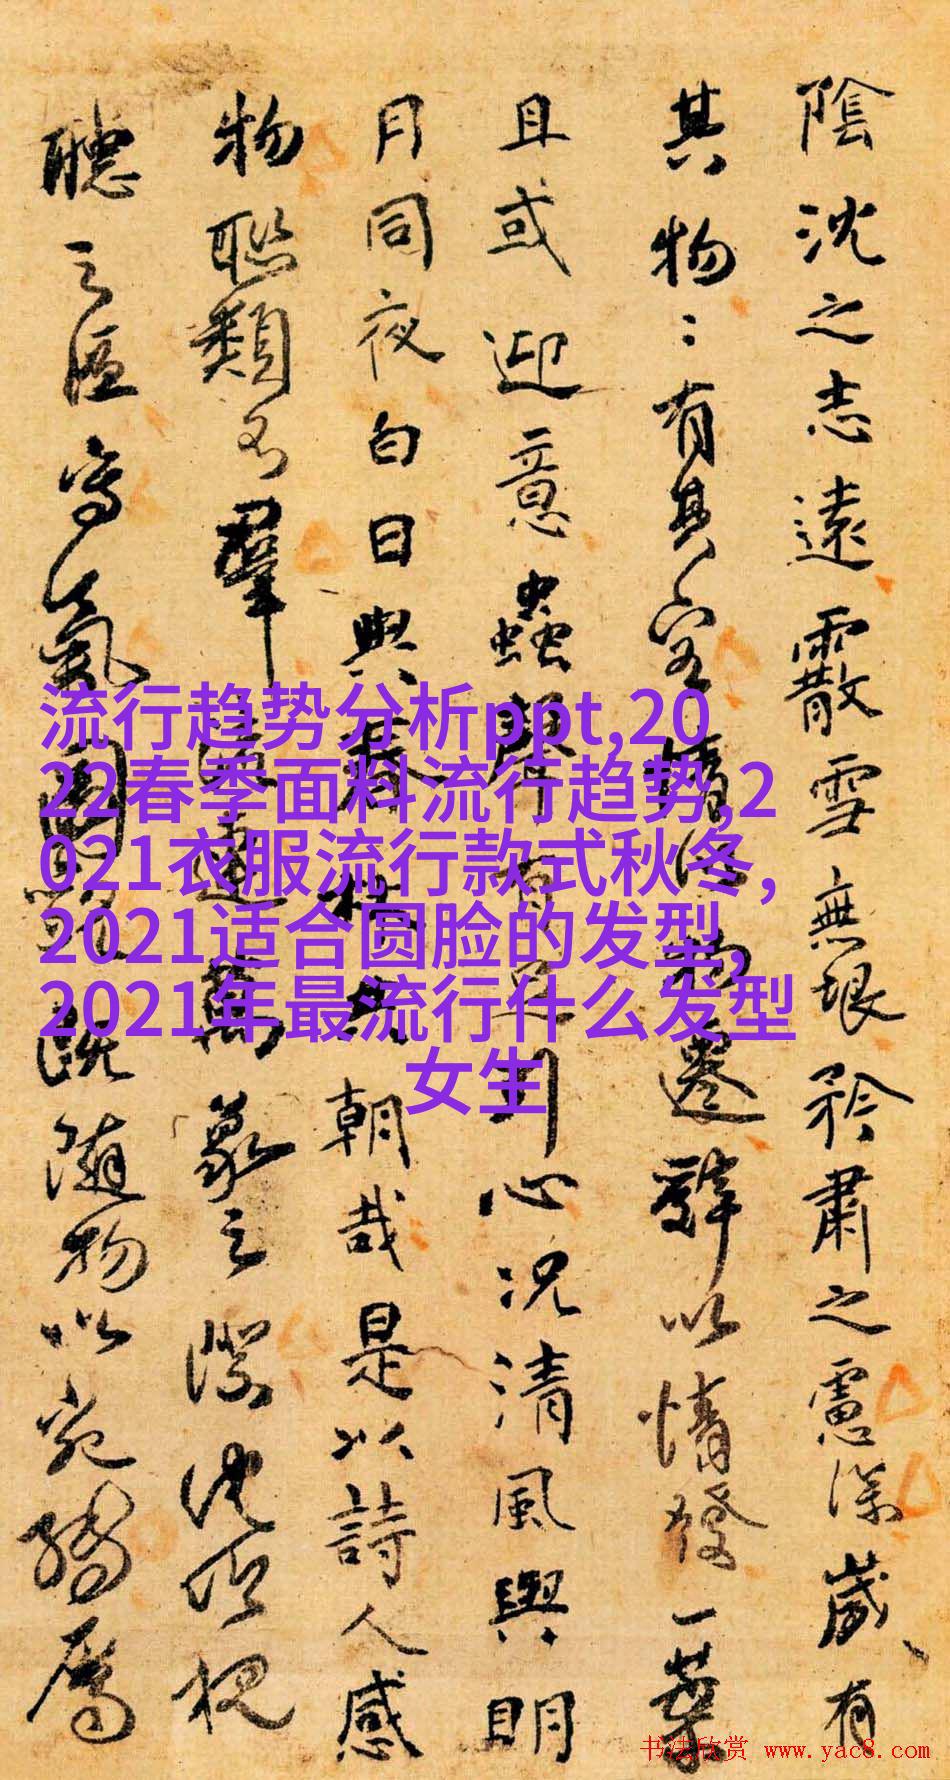 陰沈之志遠霰雪無垠矜肅之慮深歲有
其物〻有其容情以物遷辭以情發一葉
且或迎意蟲聲有足引心況清風與明
月同夜白日與春林共朝哉是以詩人感
物聯類不窮流連萬象之際沈吟視
聽之區寫氣圖貌既隨物以宛轉屬
流行趋势分析ppt,20
22春季面料流行趋势,2
021衣服流行款式秋冬,
2021适合圆脸的发型,
2021年最流行什么发型
女生
书法欣赏 www.yac8.com